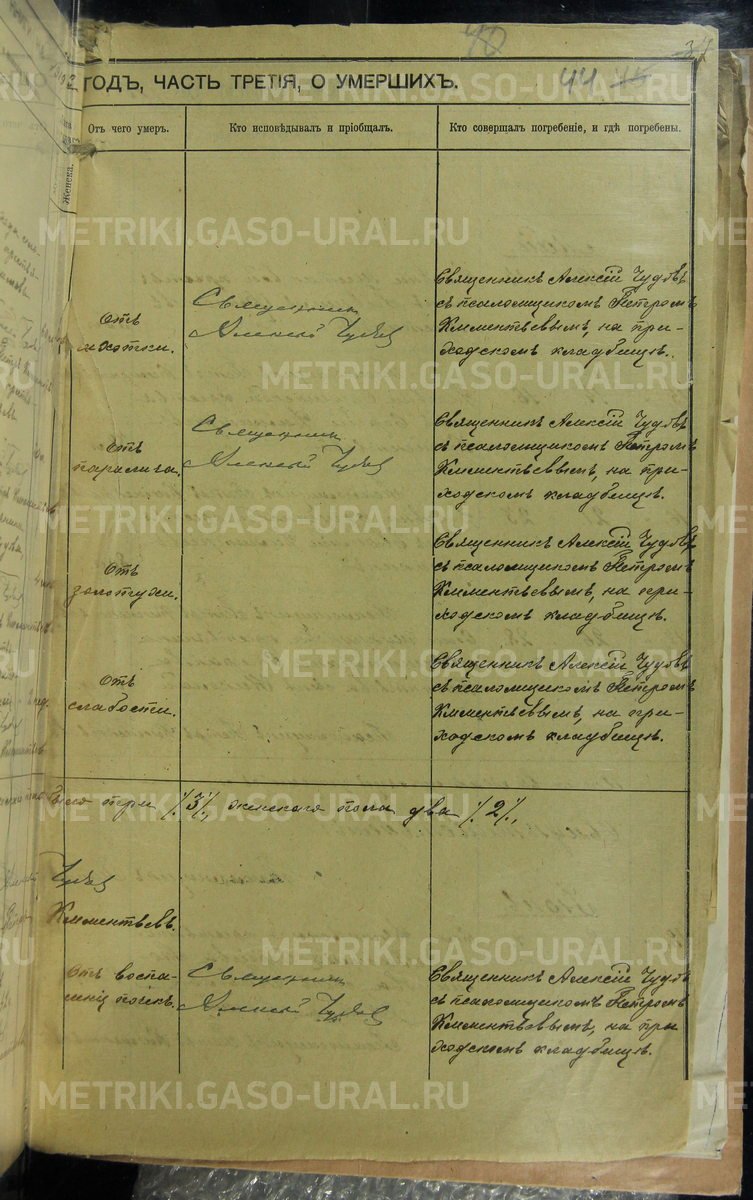 40
34
ГОДЪ, ЧАСТЬ ТРЕТІЯ, О УМЕРШИХЪ.
44 45
Женска.
Отъ чего умер.
Кто исповѣдывал и пріобщал.
Кто совершал погребеніе, и гдѣ погребены.
Отъ
чахотки.
Священникъ
Алексій Чудовъ
Священникъ Алексій Чудовъ
съ псаломщикомъ Петромъ
Климентьевымъ, на при-
ходскомъ кладбищѣ.
Отъ
паралича.
Священникъ
Алексій Чудовъ
Священникъ Алексій Чудовъ
съ псаломщикомъ Петромъ
Климентьевымъ, на при-
ходскомъ кладбищѣ.
Отъ
золотухи.
Священникъ Алексій Чудовъ
съ псаломщикомъ Петромъ
Климентьевымъ, на при-
ходскомъ кладбищѣ.
Отъ
слабости.
Священникъ Алексій Чудовъ
съ псаломщикомъ Петромъ
Климентьевымъ, на при-
ходскомъ кладбищѣ.
три /3/, женскаго пола два /2/,
Чудовъ
Климентьевъ.
Отъ воспа-
ленія почекъ.
Священникъ
Алексій Чудовъ
Священникъ Алексій Чудовъ
съ псаломщикомъ Петромъ
Климентьевымъ, на при
ходскомъ кладбищѣ.
METRIKI.GASO-URAL.RU